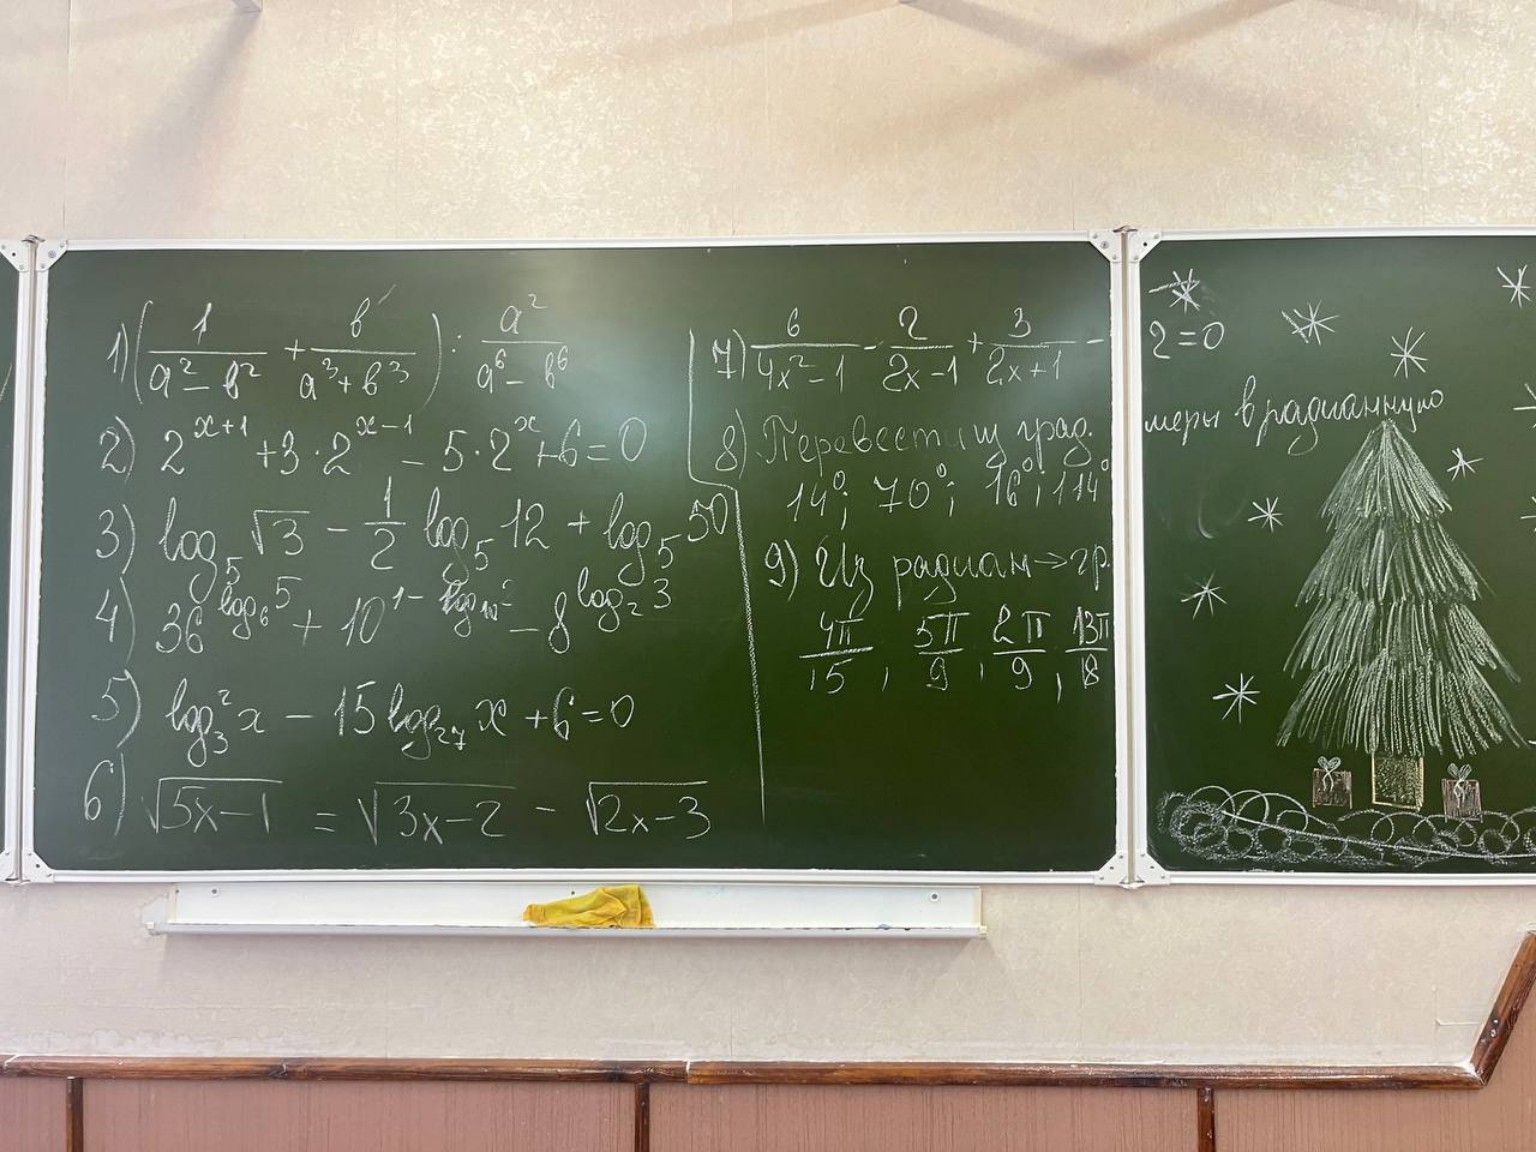 1) (1/(a² - b²) + b/(a³ + b³)) : a²/(a⁶ - b⁶)
2) 2^(x+1) + 3·2^(x-1) - 5·2^x + 6 = 0
3) log₅ √3 - 1/2 log₅ 12 + log₅ 50
4) 36^(log₆ 5) + 10^(1 - log₁₀ 2) - 8^(log₂ 3)
5) log₃² x - 15 log₂₇ x + 6 = 0
6) √(5x-1) = √(3x-2) - √(2x-3)
7) 6/(4x²-1) - 2/(2x-1) + 3/(2x+1) - 2 = 0
8) Перевести из град. меры в радианную
14°; 70°; 16°; 114°
9) Из радиан → гр.
4π/15, 5π/9, 2π/9, 13π/18